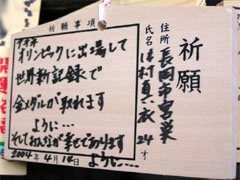 祈願
祈願事項
住所 長岡市宮栄
氏名 村真 24才
オリンピックに出場して
世界新記録で
金メダルが取れます
ように…
そしてみんなが幸せであります
ように…
2004年4月14日